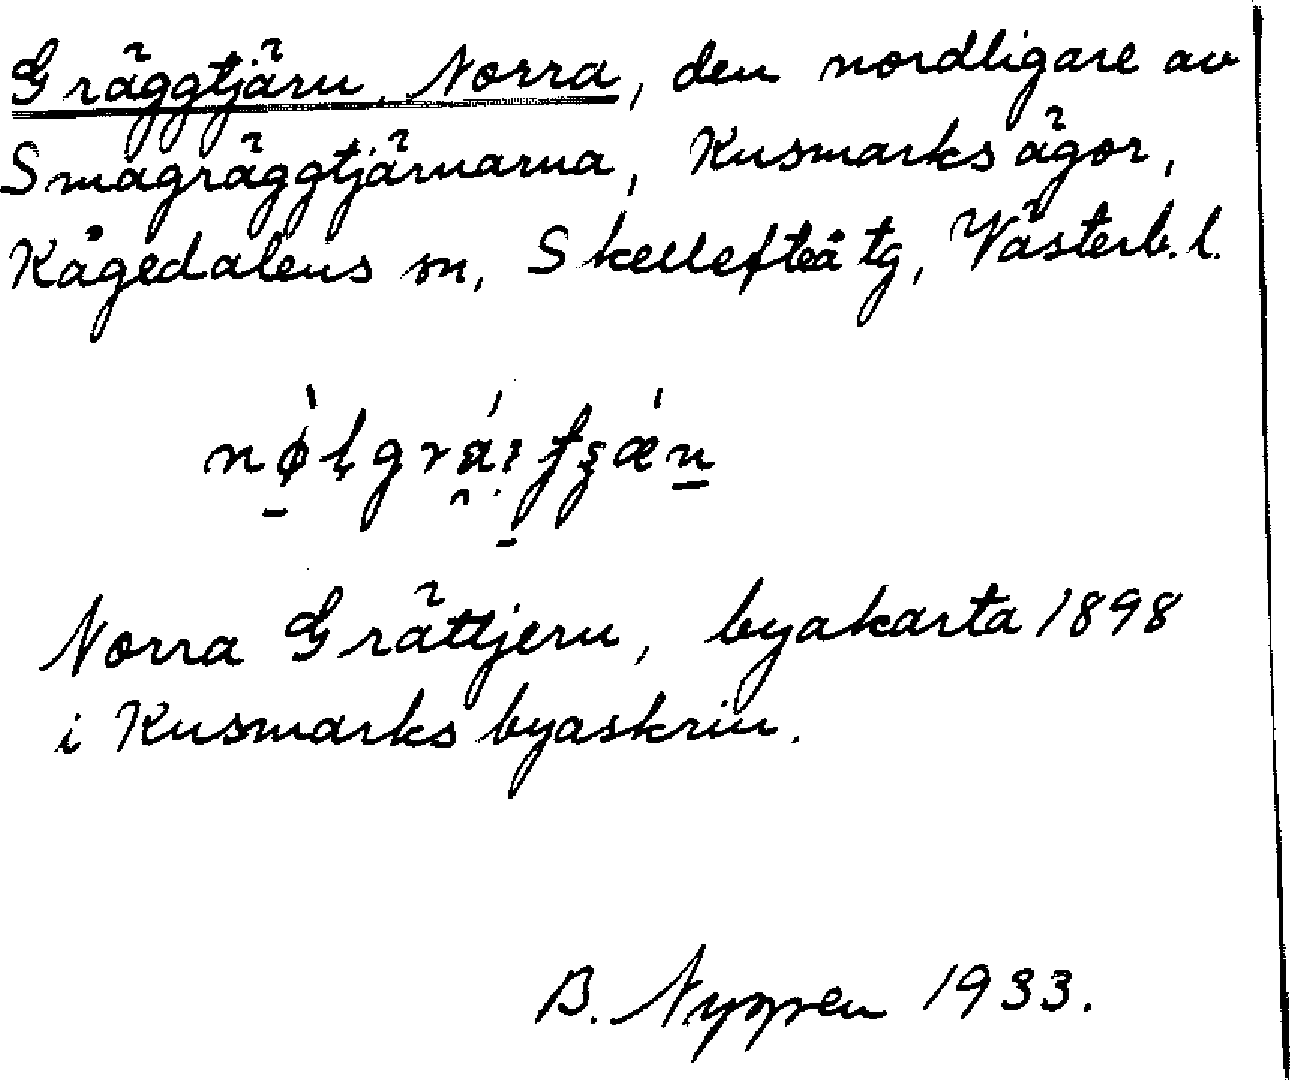 Gräggtjärn, Norra, den nordligare av
Smågräggtjärnarna, Kusmarks ägor,
Kågedalens sn, Skellefteå tg, Västerb. l.
Norra Grättjern, byakarta 1898
i Kusmarks byaskrin.
B. Nygren 1933.